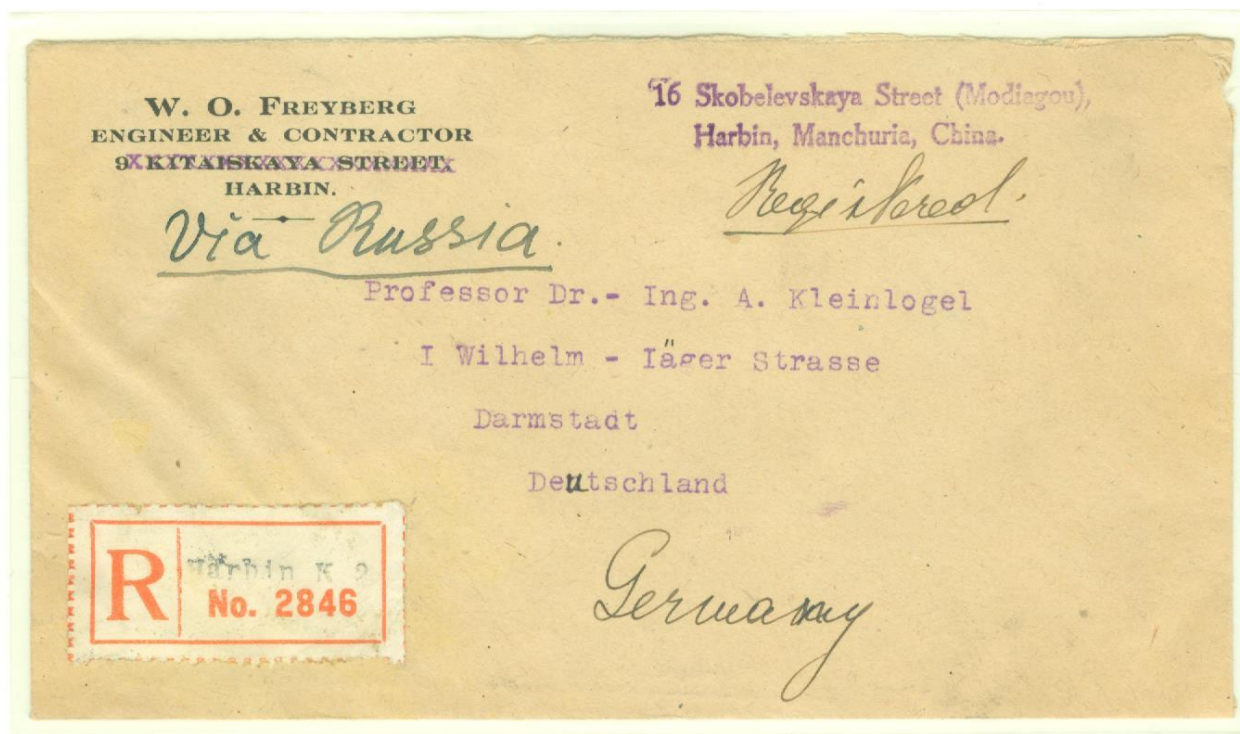 W. O. FREYBERG
ENGINEER & CONTRACTOR
9 KITAISKAYA STREET.
HARBIN.
Via Russia.
16 Skobelevskaya Street (Modiagou),
Harbin, Manchuria, China.
Registered.
Professor Dr.- Ing. A. Kleinlogel
I Wilhelm - Iäger Strasse
Darmstadt
Deutschland
Germany
R
Harbin K 2
No. 2846